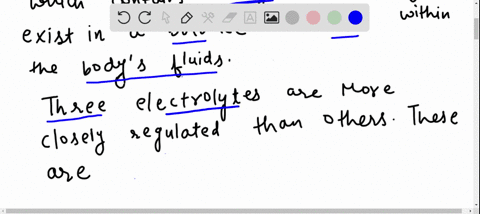 which within
exist in a
the body's fluids.
Three electrolytes are more
closely regulated than others. These
are